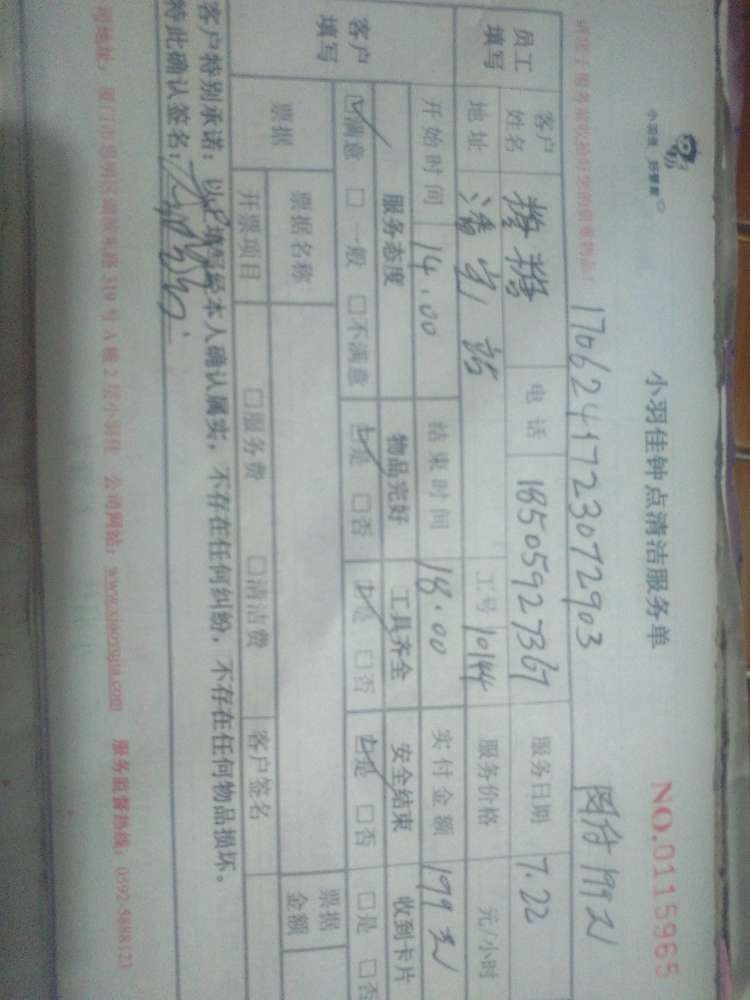 小羽佳 好管家
小羽佳钟点清洁服务单
NO.0115965
请您于服务前收拾好您的贵重物品!
1706241723072903
团付199元
员工填写
客户姓名
电话 18505927367
服务日期 7.22
地址
工号 10144
服务价格 元/小时
开始时间 14.00
结束时间 18.00
实付金额 199元
客户填写
服务态度 物品完好 工具齐全 安全结束 收到卡片
☑满意 □一般 □不满意 ☑是 □否 ☑是 □否 ☑是 □否 □是 □否
票据
票据名称
票据金额
开票项目 □服务费 □清洁费 客户签名
客户特别承诺:以上填写经本人确认属实,不存在任何纠纷,不存在任何物品损坏。
特此确认签名:
司地址:厦门市思明区 319号A楼2层小羽佳 公司网站:www.xiaoyujia.com 服务监督热线:0592-5888123